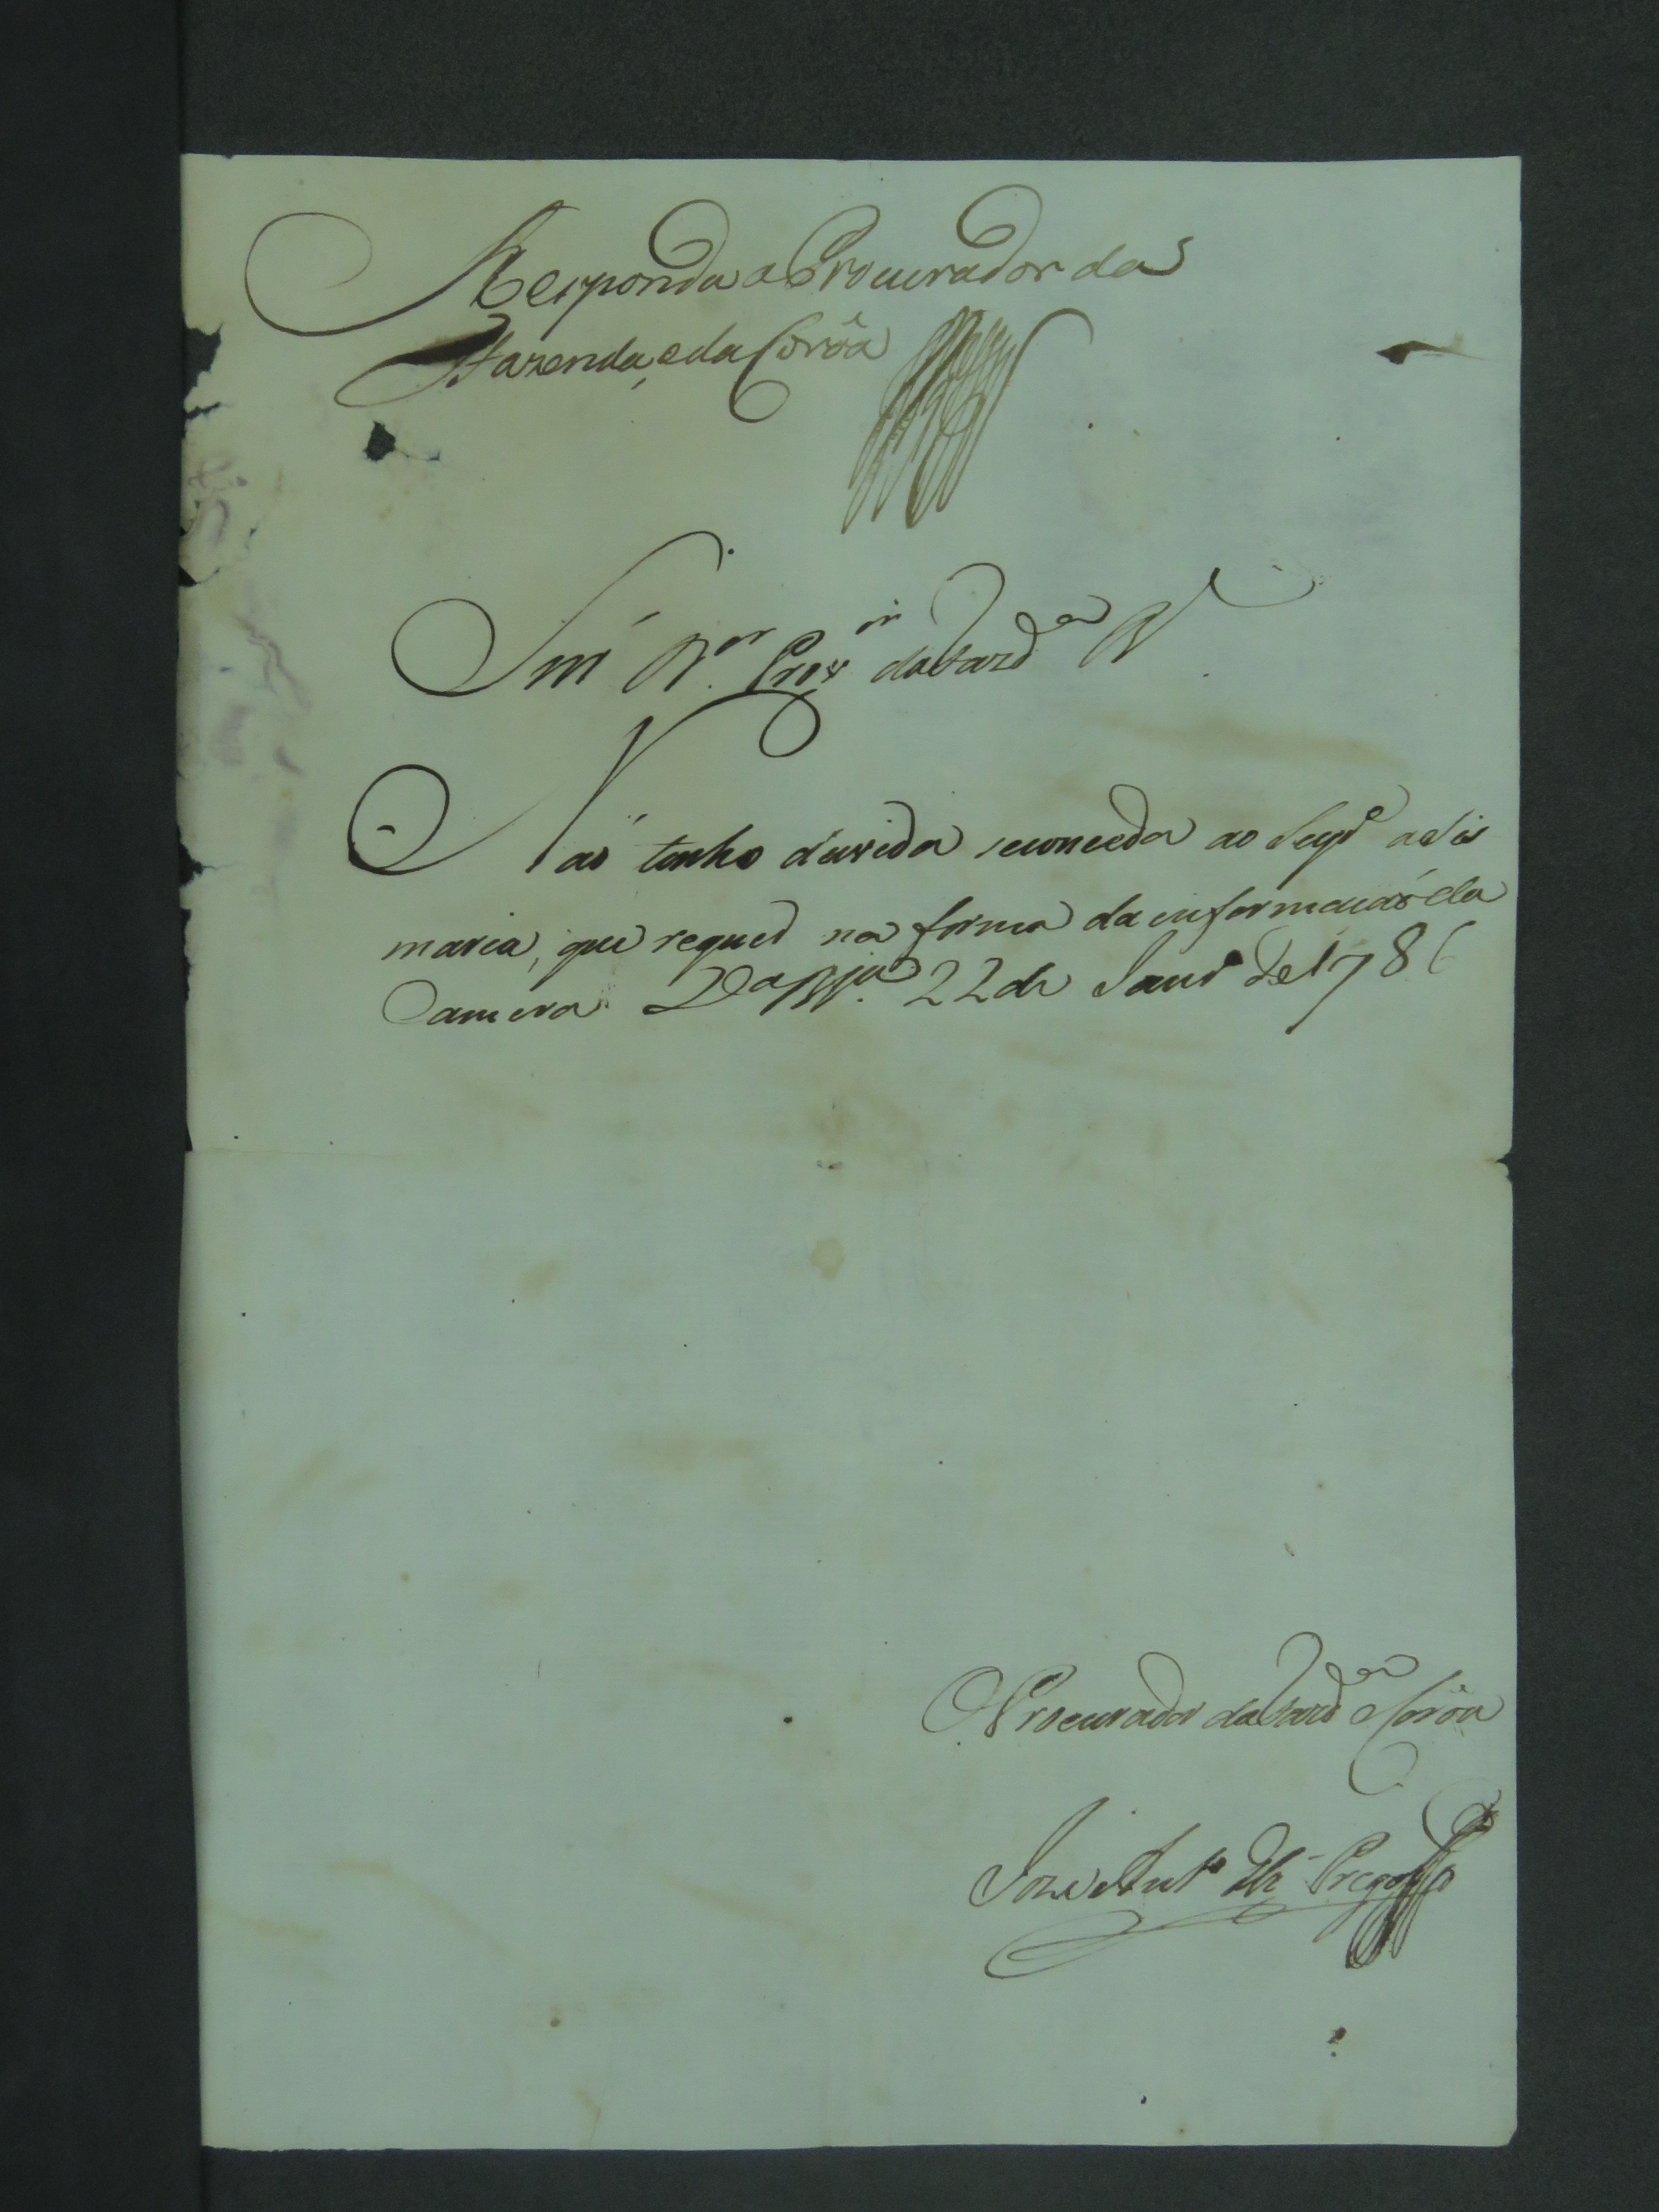 Responda o Procurador da
Fazenda, e da Corôa
Snr. Dr. Prov.or da Fazd.a R.
Naõ tenho duvida seconceda ao Sup.e aSis
maria, que requer na forma da informacaõ da
Camera 22 de Janr.o de 1786
O Procurador da Fazd.a e Corôa
Joze Ant.o